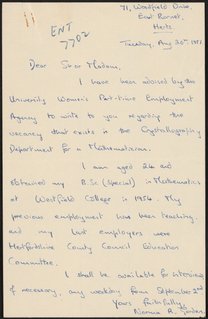 71, Woodfield Drive,
East Barnet,
Herts
ENT
7702
Tuesday, Aug 20th
Dear Sir or Madam,
I have been advised by the
University Women's Part-time Employment
Agency to write to you regarding the
vacancy that exists in the Crystallography
Department for a Mathematician.
I am aged 24 and
obtained my B.Sc (Special) in Mathematics
at Westfield College in 1954. My
previous employment was been teaching
and my last employers were
Hertfordshire County Council Education
Committee.
I shall be available for interview
if necessary, any weekday from September 2nd
Yours faithfully,
Norma R.